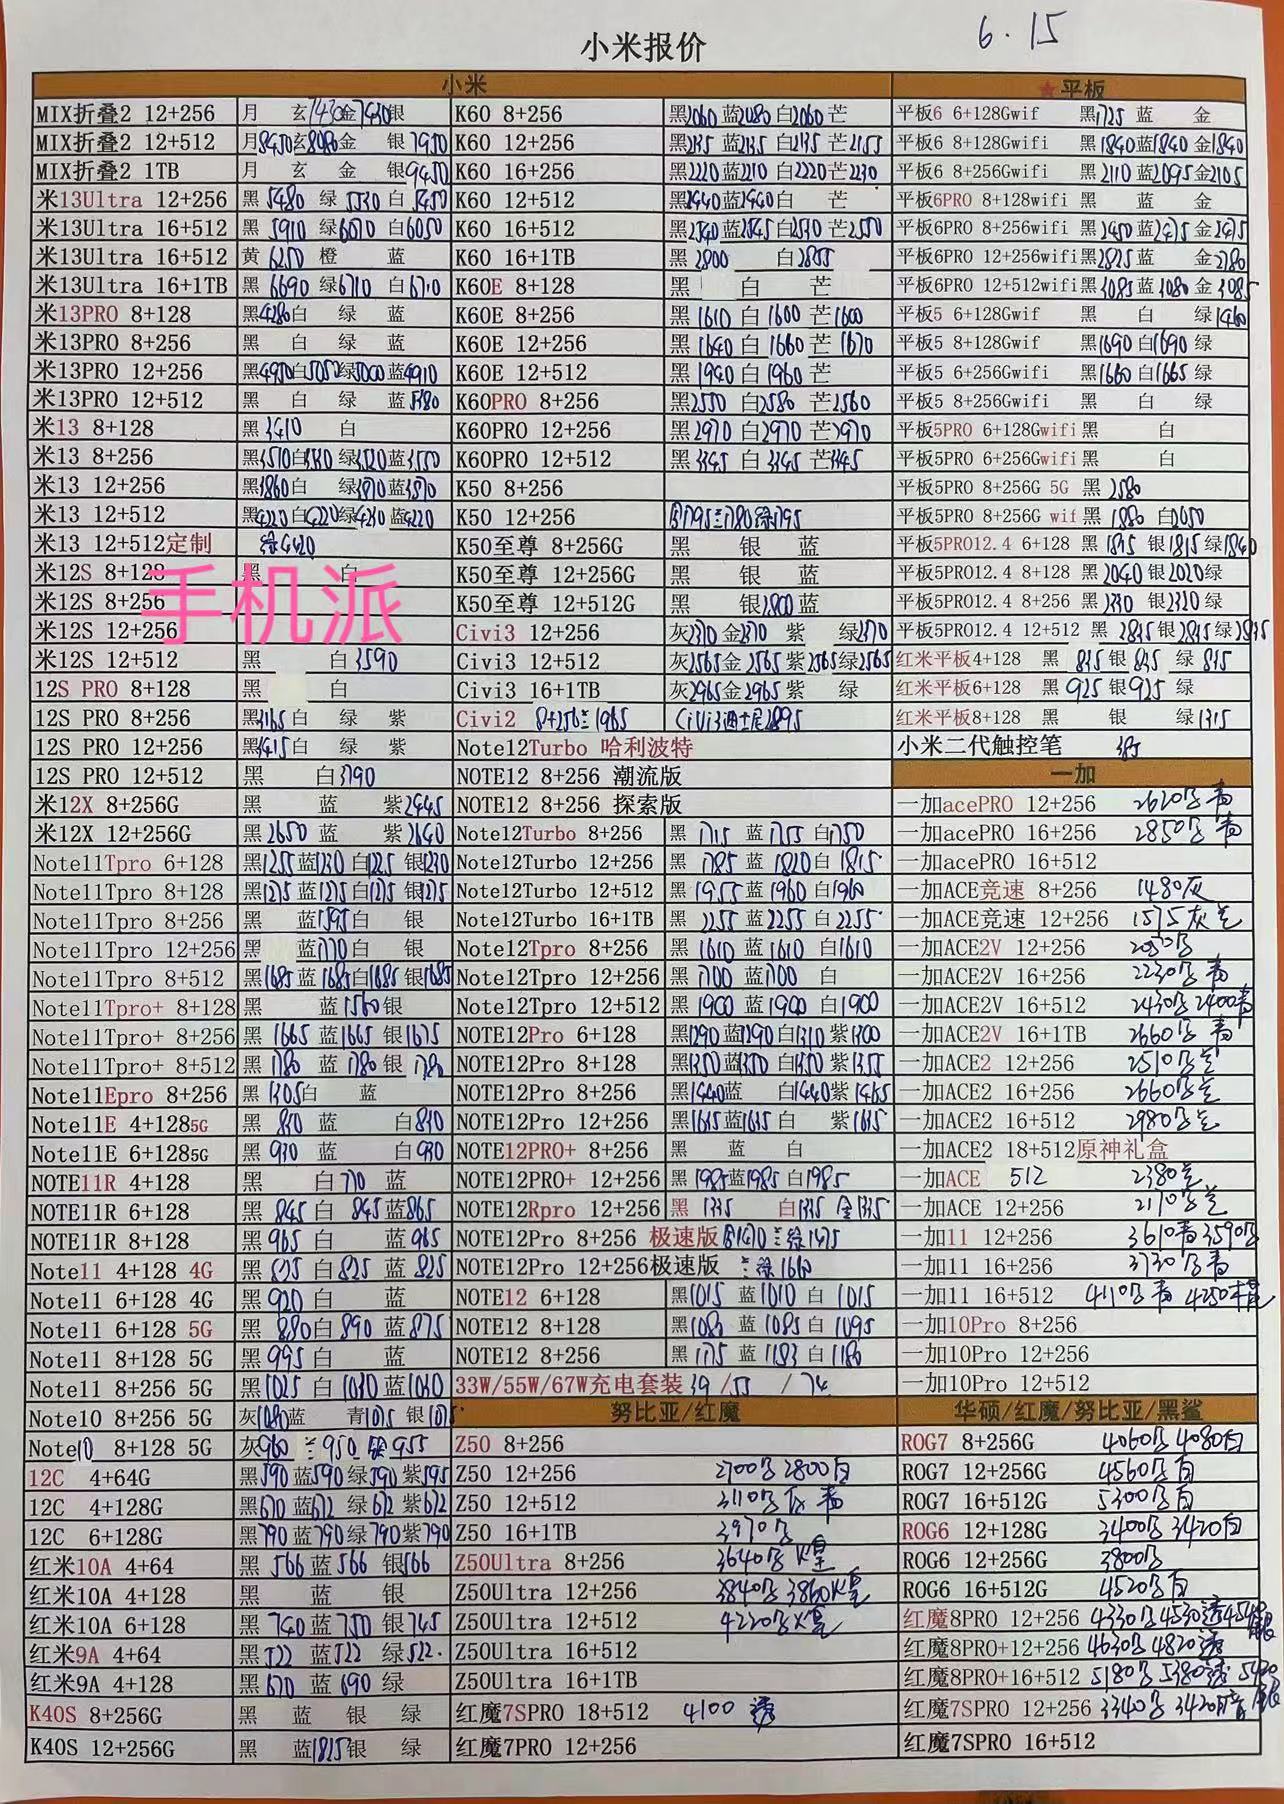 6.15
小米报价
小米
MIX折叠2 12+256 月 玄7430金7430银
MIX折叠2 12+512 月8450玄8080金 银7950
MIX折叠2 1TB 月 玄 金 银9450
米13Ultra 12+256 黑5480 绿5530 白5450
米13Ultra 16+512 黑5910 绿6070 白6050
米13Ultra 16+512 黄6250 橙 蓝
米13Ultra 16+1TB 黑6690 绿6710 白6710
米13PRO 8+128 黑4280白 绿 蓝
米13PRO 8+256 黑 白 绿 蓝
米13PRO 12+256 黑4950白5050绿5000蓝4910
米13PRO 12+512 黑 白 绿 蓝5380
米13 8+128 黑3410 白
米13 8+256 黑3510白 绿3520蓝3550
米13 12+256 黑3860白 绿3870蓝3870
米13 12+512 黑4220白4220绿4230蓝4220
米13 12+512定制 绿4420
米12S 8+128 黑 白
米12S 8+256
手机派
米12S 12+256
米12S 12+512 黑 白3590
12S PRO 8+128 黑 白
12S PRO 8+256 黑3165白 绿 紫
12S PRO 12+256 黑3415白 绿 紫
12S PRO 12+512 黑 白3790
米12X 8+256G 黑 蓝 紫2445
米12X 12+256G 黑2650 蓝 紫2640
Note11Tpro 6+128 黑1255蓝1230白1225 银1230
Note11Tpro 8+128 黑1275蓝1275白1275银1275
Note11Tpro 8+256 黑 蓝1595白 银
Note11Tpro 12+256 黑 蓝1770白 银
Note11Tpro 8+512 黑1685蓝1685白1685银1685
Note11Tpro+ 8+128 黑 蓝1560银
Note11Tpro+ 8+256 黑1665 蓝1665 银1675
Note11Tpro+ 8+512 黑1780 蓝1780银1780
Note11Epro 8+256 黑1305白 蓝
Note11E 4+1285G 黑830 蓝 白830
Note11E 6+1285G 黑930 蓝 白930
NOTE11R 4+128 黑 白770 蓝
NOTE11R 6+128 黑845 白845蓝865
NOTE11R 8+128 黑965 白 蓝965
Note11 4+128 4G 黑825 白825 蓝825
Note11 6+128 4G 黑920 白 蓝
Note11 6+128 5G 黑880白890 蓝875
Note11 8+128 5G 黑995白 蓝
Note11 8+256 5G 黑1025 白1030蓝1030
Note10 8+256 5G 灰1080蓝 青1075 银1075
Note10 8+128 5G 灰960 兰950 银955
12C 4+64G 黑590蓝590绿590紫595
12C 4+128G 黑670蓝672 绿672 紫672
12C 6+128G 黑790蓝790绿790紫790
红米10A 4+64 黑566蓝566 银566
红米10A 4+128 黑 蓝 银
红米10A 6+128 黑740蓝750银745
红米9A 4+64 黑522 蓝522 绿522
红米9A 4+128 黑670 蓝690绿
K40S 8+256G 黑 蓝 银 绿
K40S 12+256G 黑 蓝1815银 绿
K60 8+256 黑2060蓝2080白2060芒
K60 12+256 黑2135蓝2135白2135芒2155
K60 16+256 黑2220蓝2210白2220芒2230
K60 12+512 黑2440蓝2440白 芒
K60 16+512 黑2540蓝2545白2530芒2550
K60 16+1TB 黑2800 白2855
K60E 8+128 黑 白 芒
K60E 8+256 黑1610 白1600芒1600
K60E 12+256 黑1640白1660芒1670
K60E 12+512 黑1940白1960芒
K60PRO 8+256 黑2550 白2580 芒2560
K60PRO 12+256 黑2970 白2970芒2970
K60PRO 12+512 黑3145 白3145芒3145
K50 8+256
K50 12+256 白1795兰1780绿1795
K50至尊 8+256G 黑 银 蓝
K50至尊 12+256G 黑 银 蓝
K50至尊 12+512G 黑 银2800蓝
Civi3 12+256 灰2370金2370 紫 绿2370
Civi3 12+512 灰2565金2565紫2565绿2565
Civi3 16+1TB 灰2965金2965紫 绿
Civi2 8+256兰1965 Civi3迪士尼2895
Note12Turbo 哈利波特
NOTE12 8+256 潮流版
NOTE12 8+256 探索版
Note12Turbo 8+256 黑1715 蓝1755 白1750
Note12Turbo 12+256 黑1785 蓝1820白1815
Note12Turbo 12+512 黑1955蓝1960白1960
Note12Turbo 16+1TB 黑2255 蓝2255 白2255
Note12Tpro 8+256 黑1610 蓝1610 白1610
Note12Tpro 12+256 黑1700 蓝1700 白
Note12Tpro 12+512 黑1900 蓝1900 白1900
NOTE12Pro 6+128 黑1290蓝1290白1310紫1300
NOTE12Pro 8+128 黑1350蓝1350白1350紫1355
NOTE12Pro 8+256 黑1440蓝 白1440紫1465
NOTE12Pro 12+256 黑1635蓝1635白 紫1635
NOTE12PRO+ 8+256 黑 蓝 白
NOTE12PRO+ 12+256 黑1985蓝1985白1985
NOTE12Rpro 12+256 黑1335 白1335 金1335
NOTE12Pro 8+256 极速版 白1470兰绿1475
NOTE12Pro 12+256极速版 兰绿1610
NOTE12 6+128 黑1015 蓝1010 白1015
NOTE12 8+128 黑1085 蓝1085白1095
NOTE12 8+256 黑1175 蓝1183白1180
33W/55W/67W充电套装 39 /55 /74
努比亚/红魔
Z50 8+256
Z50 12+256 2700白
Z50 12+512
Z50 16+1TB
Z50Ultra 8+256
Z50Ultra 12+256
Z50Ultra 12+512
Z50Ultra 16+512
Z50Ultra 16+1TB
红魔7SPRO 18+512 4100 透
红魔7PRO 12+256
★平板
平板6 6+128Gwif 黑1725 蓝 金
平板6 8+128Gwifi 黑1840蓝1840金1840
平板6 8+256Gwifi 黑2110蓝2095金2105
平板6PRO 8+128wifi 黑 蓝 金
平板6PRO 8+256wifi 黑2450蓝2475金2475
平板6PRO 12+256wifi黑2825蓝 金2780
平板6PRO 12+512wifi黑3085蓝3080金3085
平板5 6+128Gwif 黑 白 绿1460
平板5 8+128Gwifi 黑1690白1690绿
平板5 6+256Gwifi 黑1660白1665绿
平板5 8+256Gwifi 黑 白 绿
平板5PRO 6+128Gwifi 黑 白
平板5PRO 6+256Gwifi黑 白
平板5PRO 8+256G 5G 黑2580
平板5PRO 8+256G wif 黑1880 白2050
平板5PRO12.4 6+128 黑1815 银1815绿1840
平板5PRO12.4 8+128 黑2040银2020绿
平板5PRO12.4 8+256 黑2330 银2320绿
平板5PRO12.4 12+512 黑2835银2835绿2835
红米平板4+128 黑835银835 绿835
红米平板6+128 黑925银925 绿
红米平板8+128 黑 银 绿1315
小米二代触控笔 385
一加
一加acePRO 12+256 2620 青
一加acePRO 16+256 2850 青
一加acePRO 16+512
一加ACE竞速 8+256 1480灰
一加ACE竞速 12+256 1575灰兰
一加ACE2V 12+256
一加ACE2V 16+256 2230 青
一加ACE2V 16+512 2430 2400青
一加ACE2V 16+1TB 2660 青
一加ACE2 12+256 2510
一加ACE2 16+256 2660
一加ACE2 16+512 2980
一加ACE2 18+512原神礼盒
一加ACE 512 2380兰
一加ACE 12+256 2170
一加11 12+256 3610青3590
一加11 16+256 3730 青
一加11 16+512 4110 青 4250
一加10Pro 8+256
一加10Pro 12+256
一加10Pro 12+512
华硕/红魔/努比亚/黑鲨
ROG7 8+256G 4060 4080白
ROG7 12+256G 4560 白
ROG7 16+512G 5300 白
ROG6 12+128G 3400 3420白
ROG6 12+256G 3800
ROG6 16+512G 4520 白
红魔8PRO 12+256 4330 4530透
红魔8PRO+12+256 4630 4820透
红魔8PRO+16+512 5180 5380透
红魔7SPRO 12+256 3340 3420
红魔7SPRO 16+512